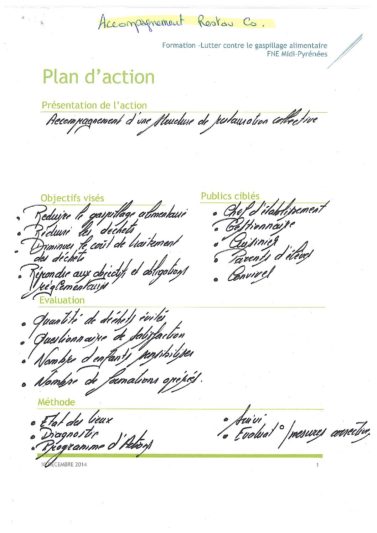 Accompagnement Restau Co.
Formation -Lutter contre le gaspillage alimentaire
FNE Midi-Pyrénées
Plan d'action
Présentation de l'action
Accompagnement d'une structure de restauration collective
Objectifs visés
• Réduire le gaspillage alimentaire
• Réduire les déchets
• Diminuer le coût de traitement
des déchets
• Répondre aux objectifs et obligations
réglementaires
Publics ciblés
• Chef d'établissement
• Gestionnaire
• Cuisinier
• Parents d'élèves
• Convive
Evaluation
• Quantité de déchets évités
• Questionnaire de satisfaction
• Nombre d'enfants sensibilisés
• Nombre de formations
Méthode
• Etat des lieux
• Diagnostic
• Programme d'Actions
• Suivi
• Evaluat° / mesures correctives
DECEMBRE 2014
1